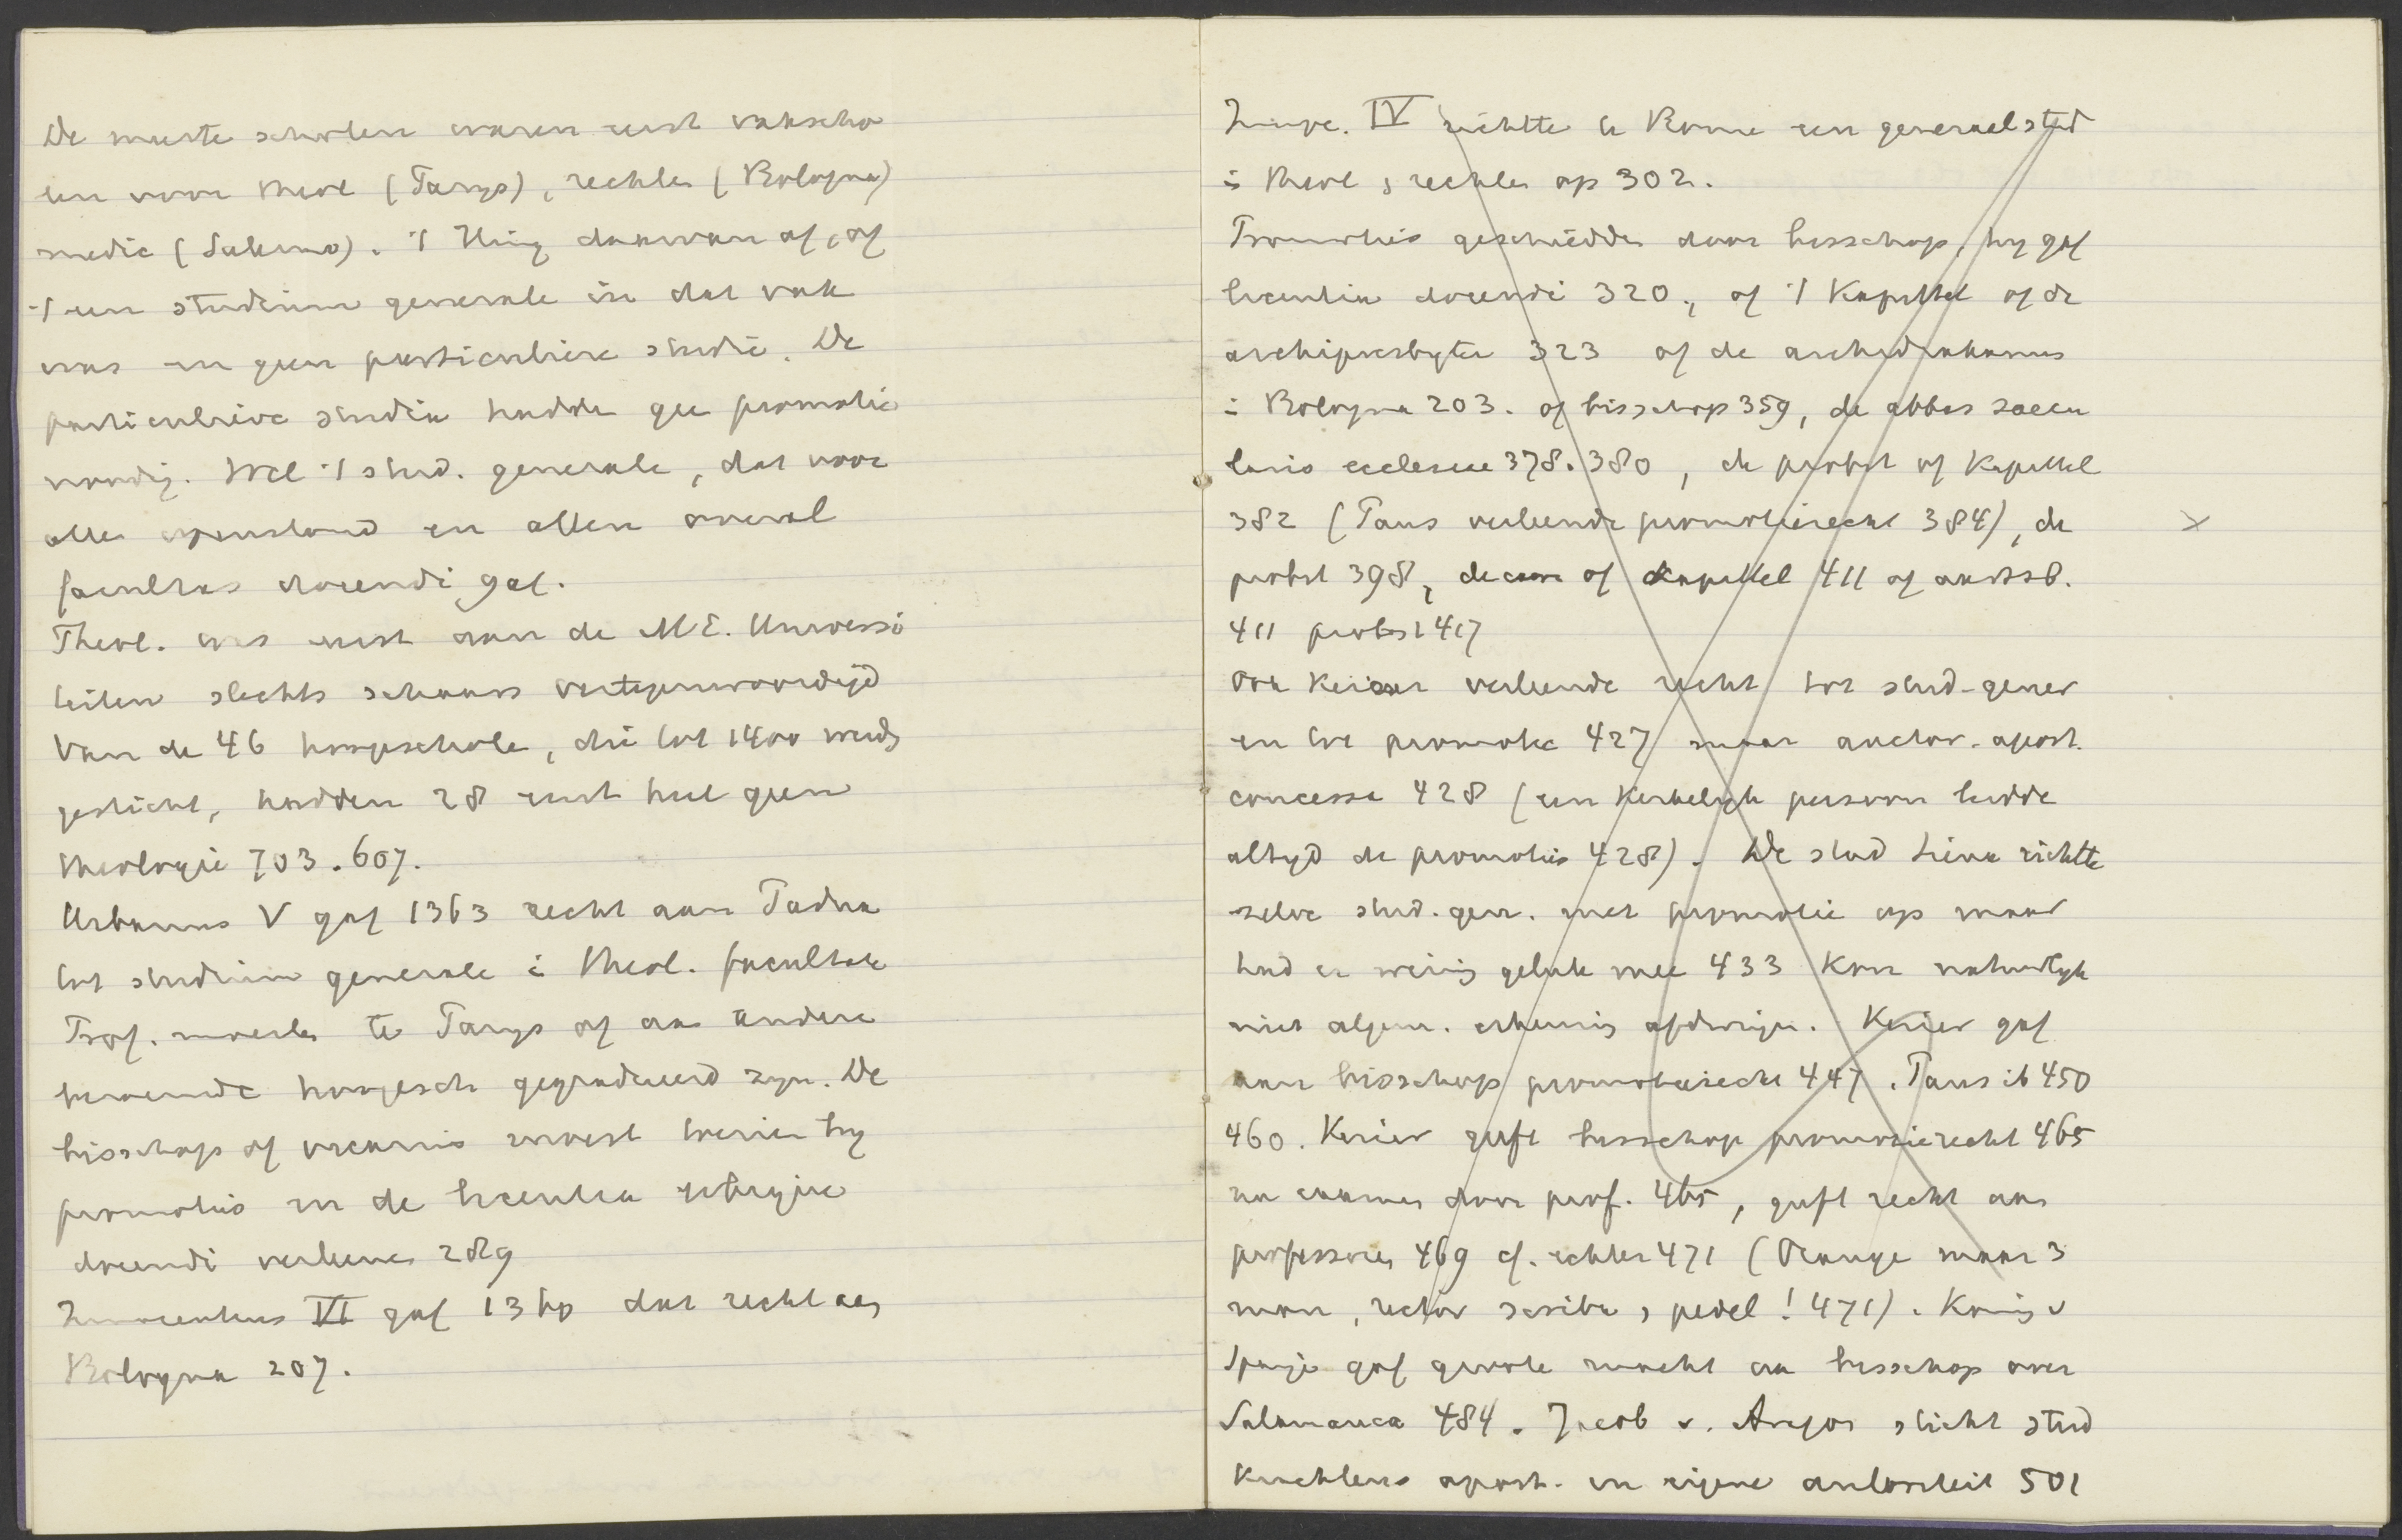 De meeste scholen waren eerst vakscho
len voor theol (Parijs), rechten (Bologna)
medic (Salerno). 't Hing daarvan af, of
't een studium generale in dat vak
was en geen particuliere studie. De
particuliere studia hadden gee promotie
noodig. Wel 't stud. generale, dat voor
allen openstond en allen overal
facultas docendi gaf.
Theol. was eerst aan de M.E. Universi
teiten slechts schaars vertegenwoordigd
Van de 46 hoogescholen, die tot 1400 werden
gesticht, hadden 28 eerst heel geen
theologie 703.607.
Urbanus V gaf 1363 recht aan Padua
tot studium generale i theol. facultate
Prof. moesten te Parijs of aan andere
beroemde hoogesch gegradueerd zijn. De
bisschop of vicaris moest toezien bij
promotie en de licentia ubique
docendi verleenen 289
Innocentius VI gaf 1360 dat recht aan
Bologna 207.
Innoc. IV richtte te Rome een generael stud
in theol & rechten op 302.
Promotie geschiedde door bisschop, hij gaf
licentia docendi 320, of 't Kapittel of de
archipresbyter 323 of de archidiakonus
in Bologna 203. of bisschop 359, de abbas saecu
laris ecclesiae 378.380, de probst of Kapittel
382 (Paus verleende promotierecht 384), de
probst 398, decaan of kapittel 411 of aartsb.
411 probst 417
Ook Keizer verleende recht tot stud-gener
en tot promotie 427 maar auctor. apost.
concessa 428 (een Kerkelijk persoon leidde
altijd de promotie 428). De stad Siena richtte
zelve stud. gen. met promotie op maar
had er weinig geluk mee 433 Kon natuurlijk
niet algem. erkenning afdwingen. Keizer gaf
aan bisschop promotierecht 447. Paus ib 450
460. Keizer geeft bisschop promotierecht 465
na examen door prof. 465, geeft recht aan
professoren 469 cf. echter 471 (Orange maar 3
man, rector scriba & pedel! 471). Koning v
Spanje gaf groote macht aan bisschop over
Salamanca 484. Jacob v. Aragon sticht stud
krachtens apost. en eigene autoriteit 501